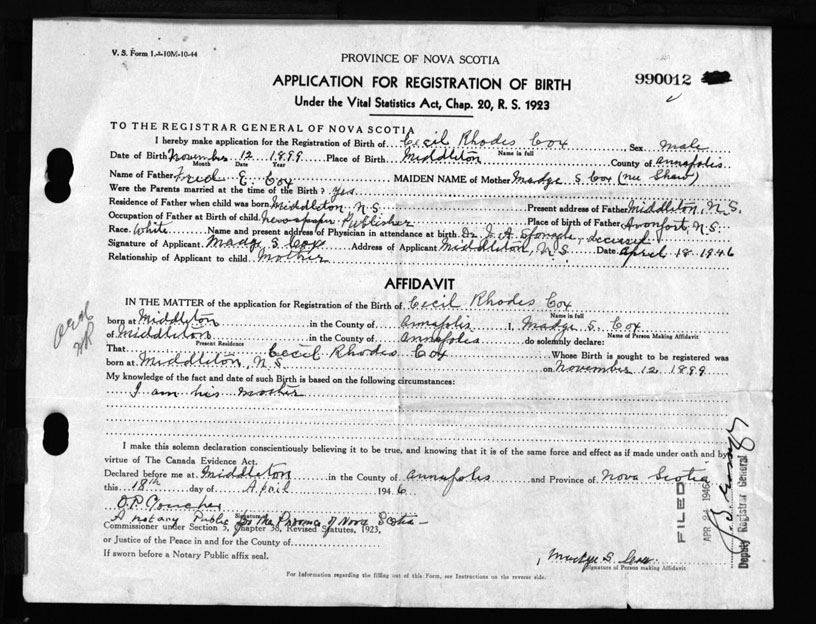 V. S. Form 1.-4-10M-10-44
PROVINCE OF NOVA SCOTIA
APPLICATION FOR REGISTRATION OF BIRTH
990012
Under the Vital Statistics Act, Chap. 20, R. S. 1923
TO THE REGISTRAR GENERAL OF NOVA SCOTIA
I hereby make application for the Registration of Birth of Cecil Rhodes Cox Sex Male
Name in full
Date of Birth November 12 1899 Place of Birth Middleton County of Annapolis
Month Date Year
Name of Father Fred E. Cox MAIDEN NAME of Mother Madge S. Cox (nee Shaw)
Were the Parents married at the time of the Birth? yes
Residence of Father when child was born Middleton N.S. Present address of Father Middleton, N.S.
Occupation of Father at Birth of child Newspaper Publisher Place of birth of Father Avonport, N.S.
Race White Name and present address of Physician in attendance at birth Dr. J. A. deceased
Signature of Applicant Madge S. Cox Address of Applicant Middleton, N.S. Date April 18 1946
Relationship of Applicant to child Mother
AFFIDAVIT
IN THE MATTER of the application for Registration of the Birth of Cecil Rhodes Cox
Name in full
born at Middleton in the County of Annapolis I, Madge S. Cox
Name of Person Making Affidavit
of Middleton in the County of Annapolis do solemnly declare:
Present Residence
That Cecil Rhodes Cox Whose Birth is sought to be registered was
born at Middleton, N.S. on November 12 1899
My knowledge of the fact and date of such Birth is based on the following circumstances:
I am his mother
I make this solemn declaration conscientiously believing it to be true, and knowing that it is of the same force and effect as if made under oath and by
virtue of The Canada Evidence Act.
Declared before me at Middleton in the County of Annapolis and Province of Nova Scotia
this 18th day of April 1946
Signature of
A Notary Public for the Province of Nova Scotia
Commissioner under Section 5, Chapter 38, Revised Statutes, 1923,
or Justice of the Peace in and for the County of
If sworn before a Notary Public affix seal.
Madge S. Cox
Signature of Person making Affidavit
For Information regarding the filling out of this Form, see Instructions on the reverse side.
FILED
APR 24 1946
Deputy Registrar General